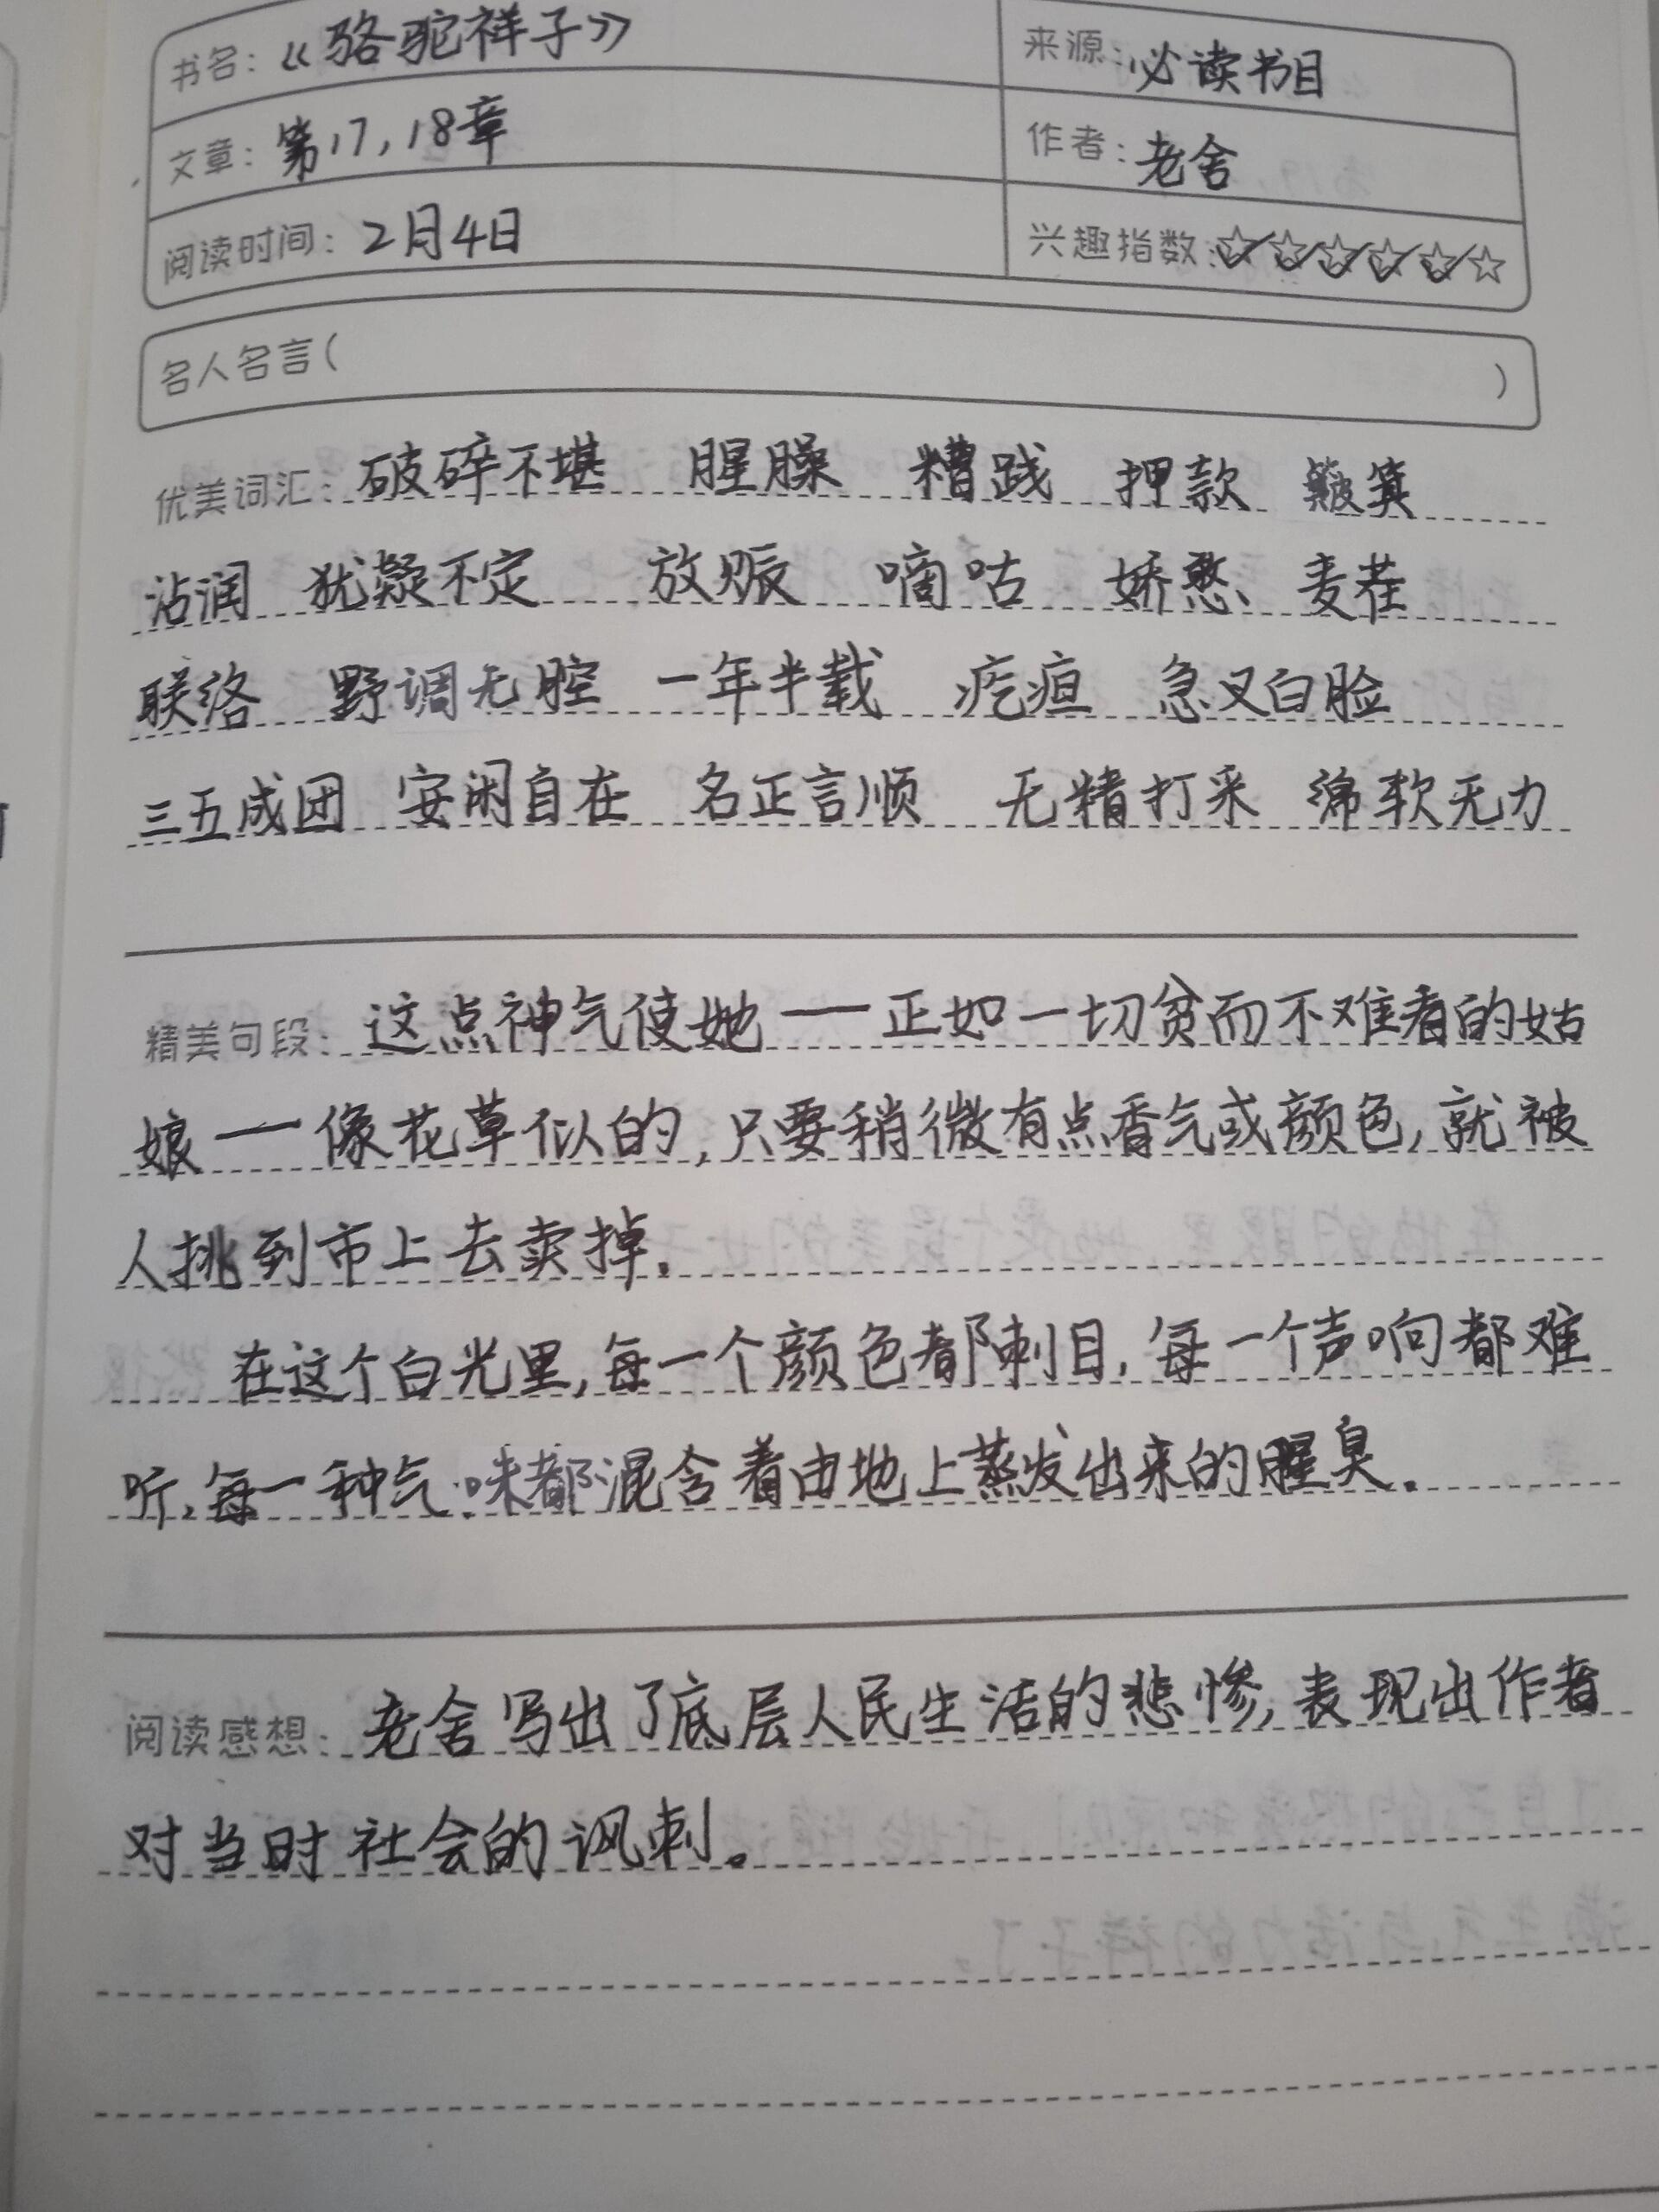 书名：《骆驼祥子》 来源：必读书目
文章：第17,18章 作者：老舍
阅读时间：2月4日 兴趣指数：
名人名言（ ）
优美词汇：破碎不堪 腥臊 糟践 押款 簸箕
沾润 犹疑不定 放赈 嘀咕 娇憨 麦茬
联络 野调无腔 一年半载 疙疸 急叉白脸
三五成团 安闲自在 名正言顺 无精打采 绵软无力
精美句段：这点神气使她——正如一切贫而不难看的姑
娘——像花草似的,只要稍微有点香气或颜色,就被
人挑到市上去卖掉。
在这个白光里,每一个颜色都刺目,每一个声响都难
听,每一种气味都混含着由地上蒸发出来的腥臭。
阅读感想：老舍写出了底层人民生活的悲惨,表现出作者
对当时社会的讽刺。